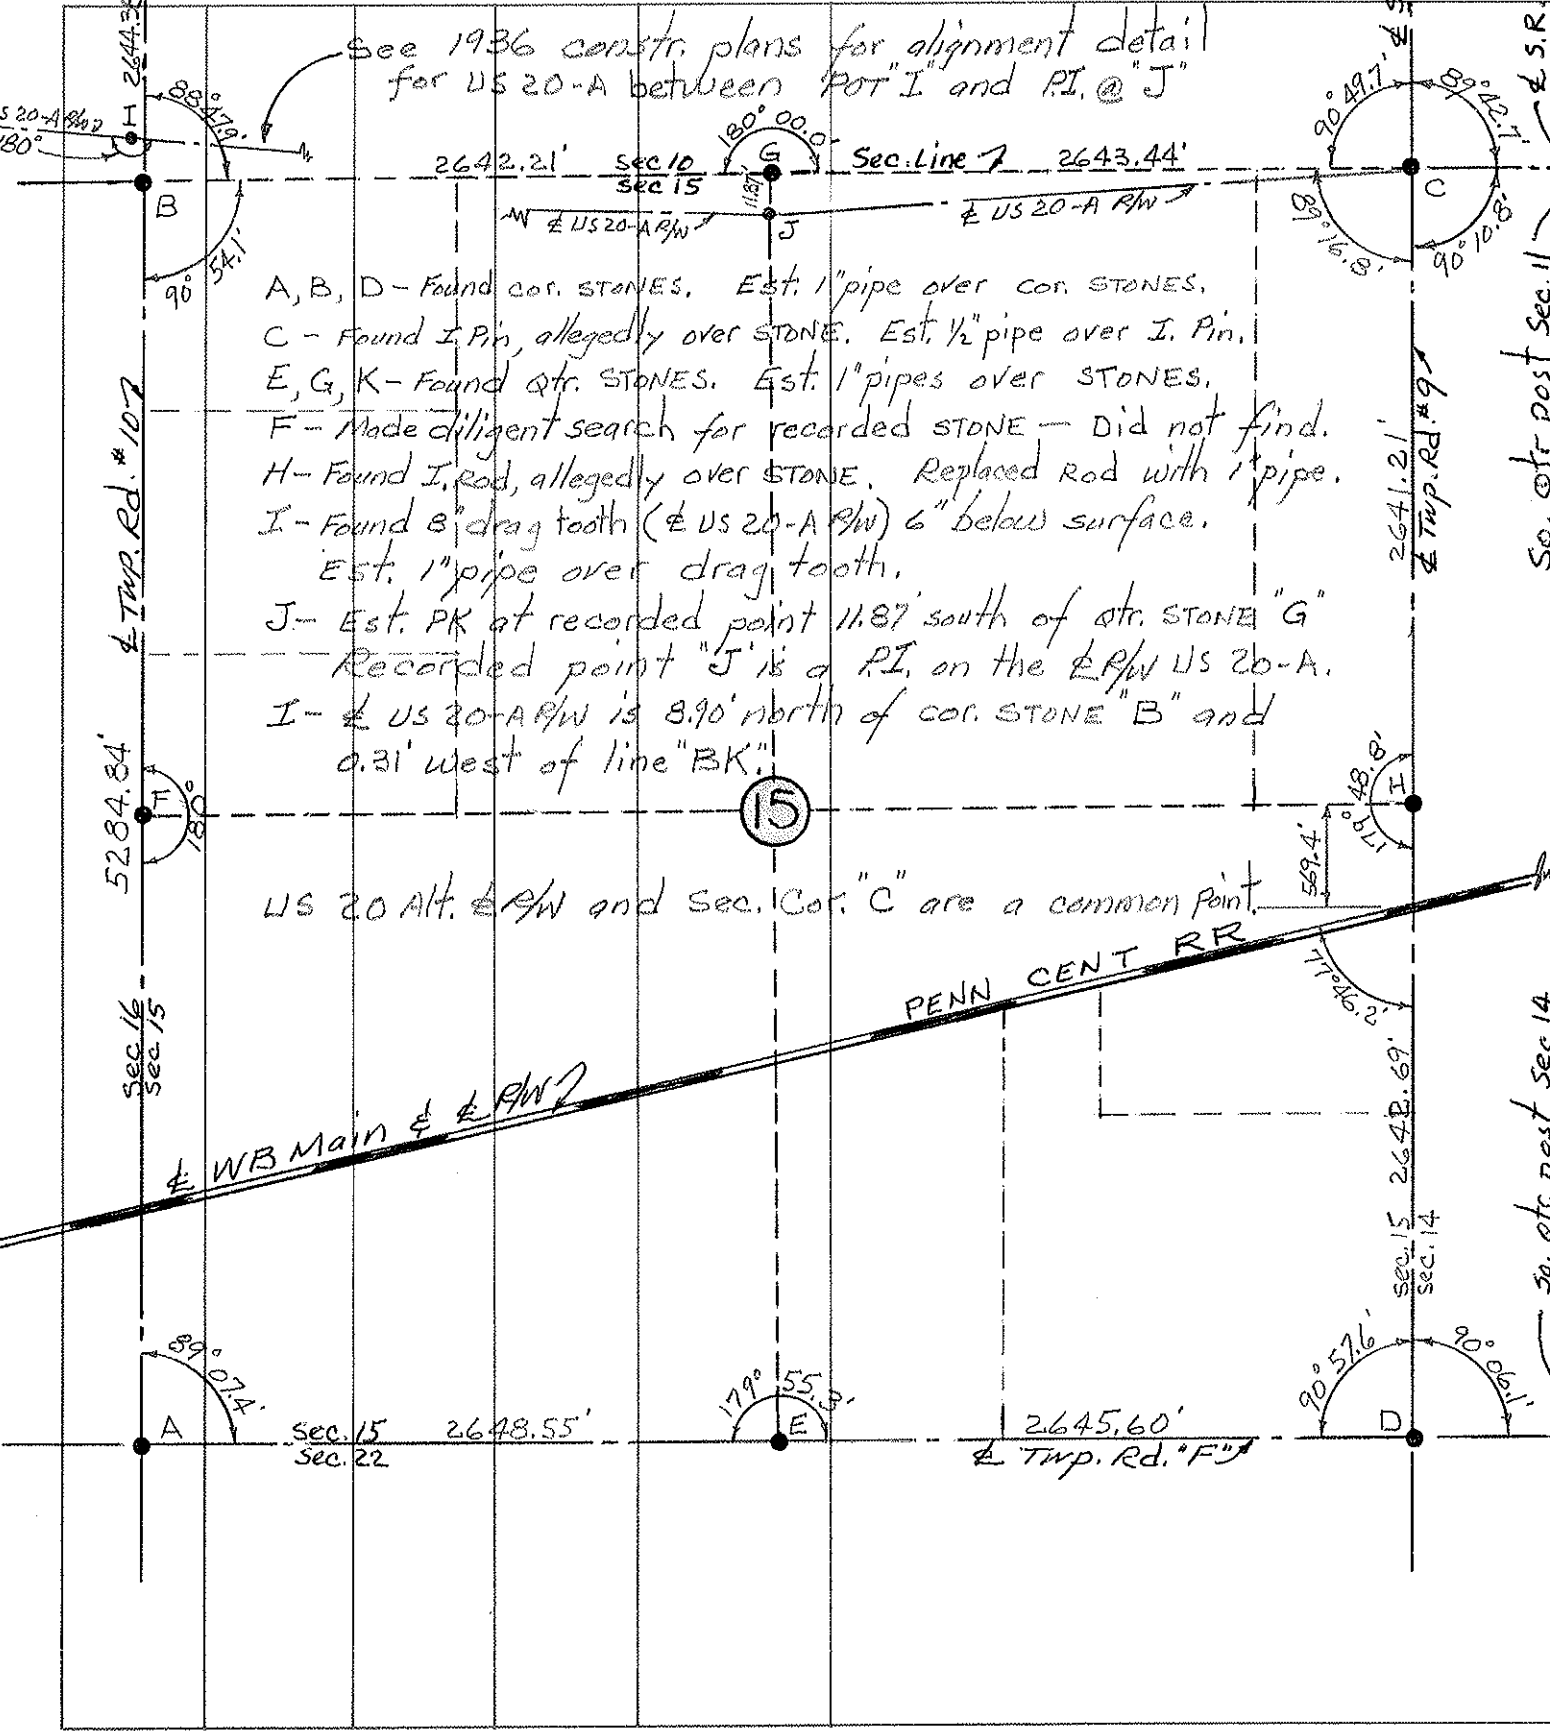 H 2644.3
See 1936 constr. plans for alignment detail
for US 20-A between POT "I" and P.I. @ "J"
88°47.9'
US 20-A R/W
180°
B
90° 54.1'
2642.21'
Sec 10
Sec 15
180° 00.0'
G
11.87'
J
Sec. Line
2643.44'
℄ US 20-A R/W
℄ US 20-A R/W
90° 49.1'
89° 42.7'
C
89° 16.8'
90° 10.8'
℄ S.R.
So. Qtr. post Sec. 11
A, B, D - Found cor. STONES. Est. 1" pipe over cor. STONES.
C - Found I. Pin, allegedly over STONE. Est. 1/2" pipe over I. Pin.
E, G, K - Found Qtr. STONES. Est. 1" pipes over STONES.
F - Made diligent search for recorded STONE — Did not find.
H - Found I. Rod, allegedly over STONE. Replaced Rod with 1" pipe.
I - Found 8" drag tooth (℄ US 20-A R/W) 6" below surface.
Est. 1" pipe over drag tooth.
J - Est. PK at recorded point 11.87' south of Qtr. STONE "G"
Recorded point "J" is a P.I. on the ℄ R/W US 20-A.
I - ℄ US 20-A R/W is 8.90' north of cor. STONE "B" and
0.31' west of line "BK".
℄ Twp. Rd. #10
2641.21'
℄ Twp. Rd. #9
5284.84'
F
180°
15
H
179° 48.8'
569.4'
US 20 Alt. ℄ R/W and Sec. Cor. "C" are a common point.
PENN CENT RR
77°46.2'
Sec 16
Sec 15
℄ WB Main & ℄ R/W
2642.69'
Sec. 15
Sec. 14
So. Qtr. post Sec 14
89° 07.4'
A
Sec. 15
Sec. 22
2648.55'
179° 55.3'
E
2645.60'
℄ Twp. Rd. "F"
90° 57.6'
90° 06.1'
D